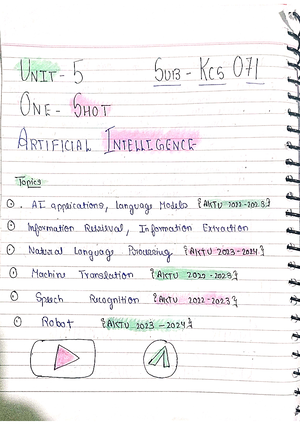 UNIT - 5 SUB - KCS 071
ONE - SHOT
ARTIFICIAL INTELLIGENCE
Topics
AI applications, Language Models {AKTU 2022-2023}
Information Retrieval, Information Extraction
Natural Language Processing {AKTU 2023-2024}
Machine Translation {AKTU 2022-2023}
Speech Recognition {AKTU 2022-2023}
Robot {AKTU 2023-2024}